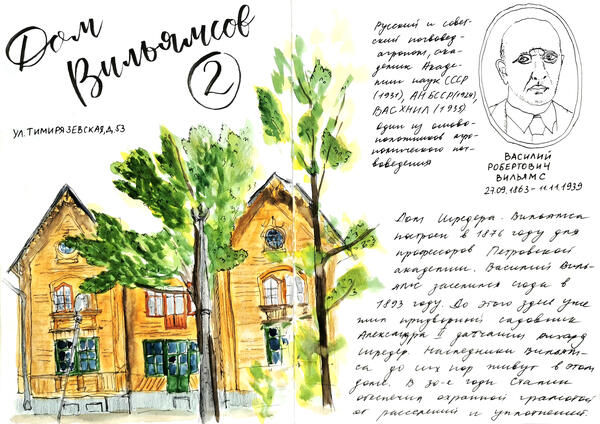 Дом
Вильямсов
2
ул. Тимирязевская, д. 53
Русский и совет-
ский почвовед-
агроном, ака-
демик Акаде-
мии наук СССР
(1931), АН БССР (1929),
ВАСХНИЛ (1935)
один из осново-
положников агро-
номического поч-
воведения
ВАСИЛИЙ
РОБЕРТОВИЧ
ВИЛЬЯМС
27.09.1863 - 11.11.1939
Дом Шредера-Вильямса
построен в 1876 году для
профессоров Петровской
академии. Василий Виль-
ямс заселился сюда в
1893 году. До этого здесь уже
жил придворный садовник
Александра II датчанин Рихард
Шредер. Наследники Вильям-
са до сих пор живут в этом
доме. В 30-е годы Сталин
обеспечил охранной грамотой
от расселений и уплотнений.